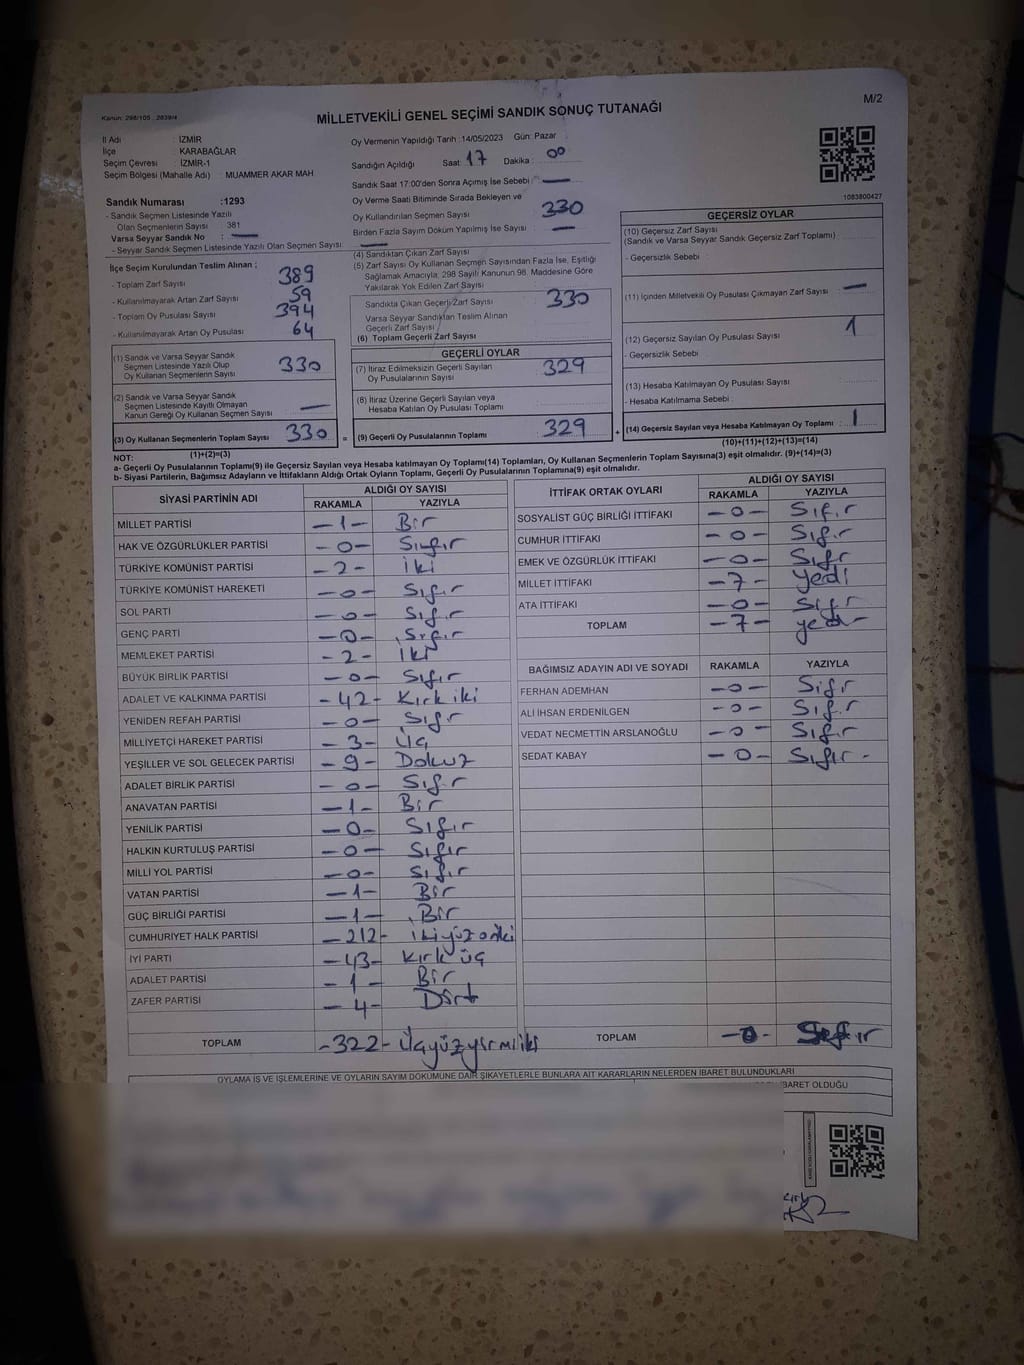 Kanun: 298/105 , 2839/4
MİLLETVEKİLİ GENEL SEÇİMİ SANDIK SONUÇ TUTANAĞI
M/2
İl Adı : İZMİR
İlçe : KARABAĞLAR
Seçim Çevresi : İZMİR-1
Seçim Bölgesi (Mahalle Adı) : MUAMMER AKAR MAH
Sandık Numarası : 1293
- Sandık Seçmen Listesinde Yazılı
Olan Seçmenlerin Sayısı : 381
Varsa Seyyar Sandık No : —
- Seyyar Sandık Seçmen Listesinde Yazılı Olan Seçmen Sayısı: —
Oy Vermenin Yapıldığı Tarih : 14/05/2023 Gün: Pazar
Sandığın Açıldığı Saat: 17 Dakika : 00
Sandık Saat 17:00'den Sonra Açımış İse Sebebi : —
Oy Verme Saati Bitiminde Sırada Bekleyen ve
Oy Kullandırılan Seçmen Sayısı 330
Birden Fazla Sayım Döküm Yapılmış İse Sayısı : —
1083800427
İlçe Seçim Kurulundan Teslim Alınan :
- Toplam Zarf Sayısı 389
- Kullanılmayarak Artan Zarf Sayısı 59
- Toplam Oy Pusulası Sayısı 394
- Kullanılmayarak Artan Oy Pusulası 64
(1) Sandık ve Varsa Seyyar Sandık
Seçmen Listesinde Yazılı Olup
Oy Kullanan Seçmenlerin Sayısı 330
(2) Sandık ve Varsa Seyyar Sandık
Seçmen Listesinde Kayıtlı Olmayan
Kanun Gereği Oy Kullanan Seçmen Sayısı —
(3) Oy Kullanan Seçmenlerin Toplam Sayısı 330 =
(1)+(2)=(3)
(4) Sandıktan Çıkan Zarf Sayısı
(5) Zarf Sayısı Oy Kullanan Seçmen Sayısından Fazla İse, Eşitliği
Sağlamak Amacıyla, 298 Sayılı Kanunun 98. Maddesine Göre
Yakılarak Yok Edilen Zarf Sayısı
Sandıkta Çıkan Geçerli Zarf Sayısı 330
Varsa Seyyar Sandıktan Teslim Alınan
Geçerli Zarf Sayısı
(6) Toplam Geçerli Zarf Sayısı
GEÇERLİ OYLAR
(7) İtiraz Edilmeksizin Geçerli Sayılan
Oy Pusulalarının Sayısı 329
(8) İtiraz Üzerine Geçerli Sayılan veya
Hesaba Katılan Oy Pusulası Toplamı
(9) Geçerli Oy Pusulalarının Toplamı 329 +
GEÇERSİZ OYLAR
(10) Geçersiz Zarf Sayısı
(Sandık ve Varsa Seyyar Sandık Geçersiz Zarf Toplamı)
- Geçersizlik Sebebi :
(11) İçinden Milletvekili Oy Pusulası Çıkmayan Zarf Sayısı —
(12) Geçersiz Sayılan Oy Pusulası Sayısı 1
- Geçersizlik Sebebi
(13) Hesaba Katılmayan Oy Pusulası Sayısı
- Hesaba Katılmama Sebebi :
(14) Geçersiz Sayılan veya Hesaba Katılmayan Oy Toplamı : 1
(10)+(11)+(12)+(13)=(14)
NOT:
a- Geçerli Oy Pusulalarının Toplamı(9) ile Geçersiz Sayılan veya Hesaba katılmayan Oy Toplamı(14) Toplamları, Oy Kullanan Seçmenlerin Toplam Sayısına(3) eşit olmalıdır. (9)+(14)=(3)
b- Siyasi Partilerin, Bağımsız Adayların ve İttifakların Aldığı Ortak Oyların Toplamı, Geçerli Oy Pusulalarının Toplamına(9) eşit olmalıdır.
SİYASİ PARTİNİN ADI
ALDIĞI OY SAYISI
RAKAMLA YAZIYLA
MİLLET PARTİSİ –1– Bir
HAK VE ÖZGÜRLÜKLER PARTİSİ –0– Sıfır
TÜRKİYE KOMÜNİST PARTİSİ –2– iki
TÜRKİYE KOMÜNİST HAREKETİ –0– Sıfır
SOL PARTİ –0– Sıfır
GENÇ PARTİ –0– Sıfır
MEMLEKET PARTİSİ –2– İki
BÜYÜK BİRLİK PARTİSİ –0– Sıfır
ADALET VE KALKINMA PARTİSİ –42– Kırk iki
YENİDEN REFAH PARTİSİ –0– Sıfır
MİLLİYETÇİ HAREKET PARTİSİ –3– Üç
YEŞİLLER VE SOL GELECEK PARTİSİ –9– Dokuz
ADALET BİRLİK PARTİSİ –0– Sıfır
ANAVATAN PARTİSİ –1– Bir
YENİLİK PARTİSİ –0– Sıfır
HALKIN KURTULUŞ PARTİSİ –0– Sıfır
MİLLİ YOL PARTİSİ –0– Sıfır
VATAN PARTİSİ –1– Bir
GÜÇ BİRLİĞİ PARTİSİ –1– Bir
CUMHURİYET HALK PARTİSİ –212– ikiyüz oniki
İYİ PARTİ –43– Kırk üç
ADALET PARTİSİ –1– Bir
ZAFER PARTİSİ –4– Dört
TOPLAM –322– Üçyüzyirmiiki
İTTİFAK ORTAK OYLARI
ALDIĞI OY SAYISI
RAKAMLA YAZIYLA
SOSYALİST GÜÇ BİRLİĞİ İTTİFAKI –0– Sıfır
CUMHUR İTTİFAKI –0– Sıfır
EMEK VE ÖZGÜRLÜK İTTİFAKI –0– Sıfır
MİLLET İTTİFAKI –7– Yedi
ATA İTTİFAKI –0– Sıfır
TOPLAM –7– yedi
BAĞIMSIZ ADAYIN ADI VE SOYADI RAKAMLA YAZIYLA
FERHAN ADEMHAN –0– Sıfır
ALİ İHSAN ERDENİLGEN –0– Sıfır
VEDAT NECMETTİN ARSLANOĞLU –0– Sıfır
SEDAT KABAY –0– Sıfır
TOPLAM –0– Sıfır
OYLAMA İŞ VE İŞLEMLERİNE VE OYLARIN SAYIM DÖKÜMÜNE DAİR ŞİKAYETLERLE BUNLARA AİT KARARLARIN NELERDEN İBARET BULUNDUKLARI
İBARET OLDUĞU